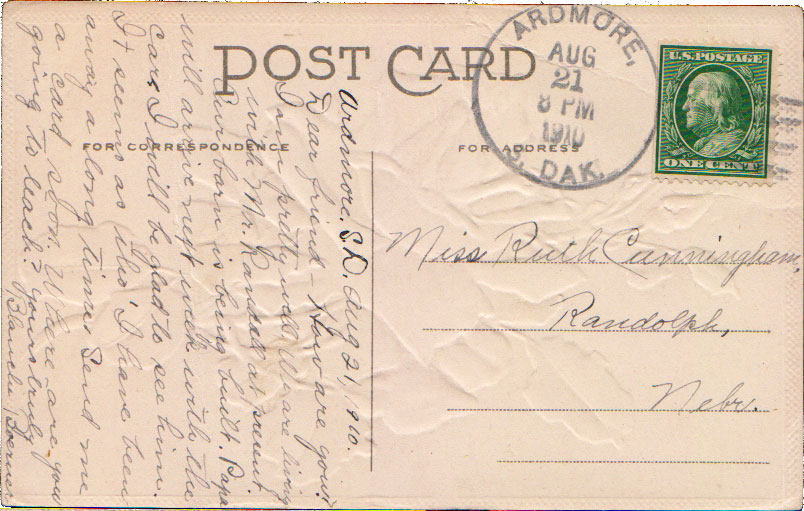 POST CARD
FOR CORRESPONDENCE
FOR ADDRESS
ARDMORE,
AUG
21
8 PM
1910
S. DAK.
U.S. POSTAGE
ONE CENT
Miss Ruth Cunningham,
Randolph,
Nebr.
Ardmore, S.D. Aug 21, 1910.
Dear friend - How are you?
I am pretty well. We are living
with Mr. Randall at present.
Our barn is being built. Papa
will arrive next week with the
cars I will be glad to see him.
It seems as tho' I have been
away a long time. Send me
a card soon. Where are you
going to teach? Yours truly
Blanche